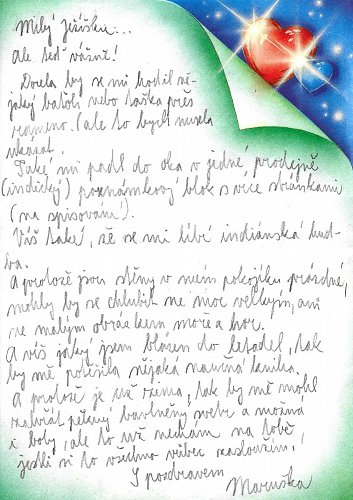 Milý ježíšku...
Ale teď vážně!
Docela by se mi hodil ně-
jaký batoh nebo taška přes
rameno. (ale to bych musela
ukázat.
Také mi padl do oka v jedné prodejně
(indický) poznámkový blok s více stránkami
(na spisování).
Víš také, že se mi líbí indiánská hud-
ba.
A protože jsou stěny v mém pokojíku prázdné,
mohly by se chlubit ne moc velkým, ani
ne malým obrázkem moře a hor.
A víš jaký jsem blázen do letadel, tak
by mě potěšila nějaká naučná kniha.
A protože je už zima, tak by mě mohl
zahřát pěkný bavlněný svetr a možná
i boty, ale to už nechám na tobě,
jestli si to všechno vůbec zasloužím!
S pozdravem
Maruška